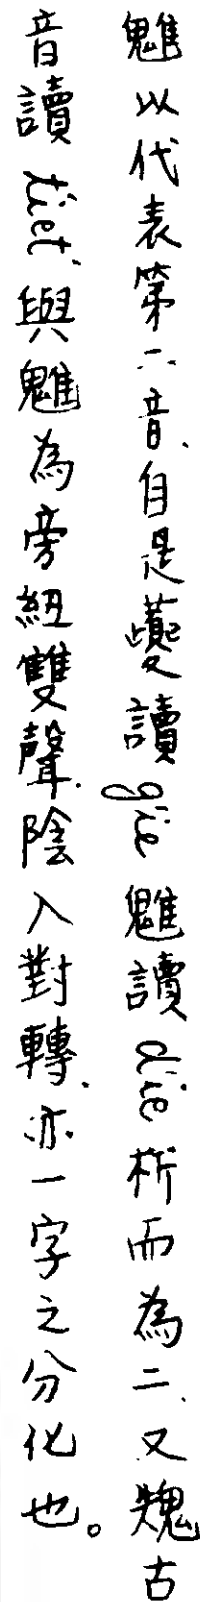 魋以代表第二音、自是夔讀gie魋讀die析而為二、又䫥古
音讀tiet、與魋為旁紐雙聲、陰入對轉、亦一字之分化也。